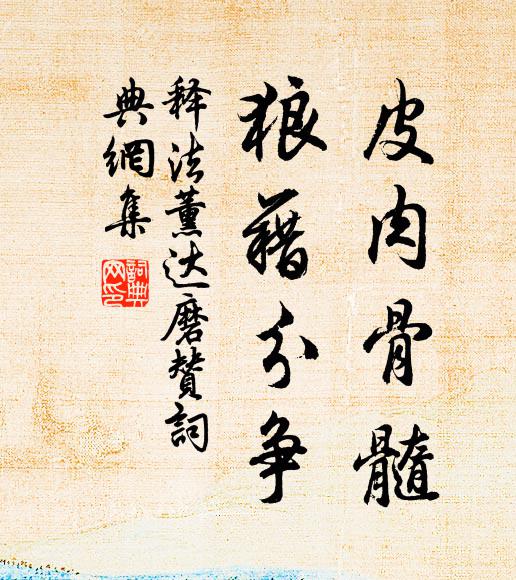 皮肉骨髓
狼藉分争
释法薰达磨赞词
典網集
詞典网印